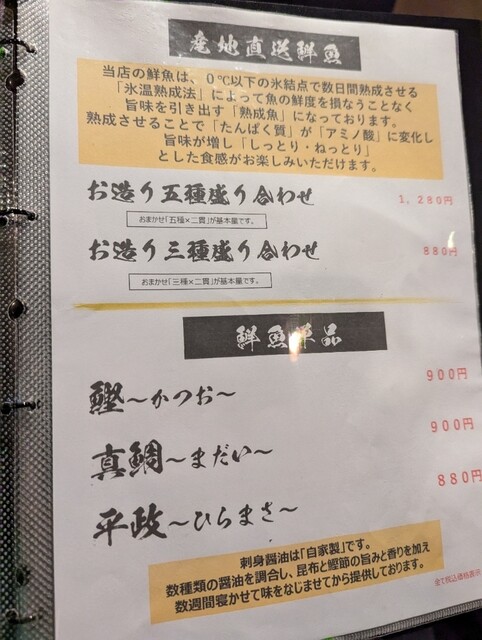 産地直送鮮魚
当店の鮮魚は、0℃以下の氷結点で数日間熟成させる
「氷温熟成法」によって魚の鮮度を損なうことなく
旨味を引き出す「熟成魚」になっております。
熟成させることで「たんぱく質」が「アミノ酸」に変化し
旨味が増し「しっとり・ねっとり」
とした食感がお楽しみいただけます。
お造り五種盛り合わせ 1,280円
おまかせ「五種×二貫」が基本量です。
お造り三種盛り合わせ 880円
おまかせ「三種×二貫」が基本量です。
鮮魚単品
鰹～かつお～ 900円
真鯛～まだい～ 900円
平政～ひらまさ～ 880円
刺身醤油は「自家製」です。
数種類の醤油を調合し、昆布と鰹節の旨みと香りを加え
数週間寝かせて味をなじませてから提供しております。
全て税込価格表示